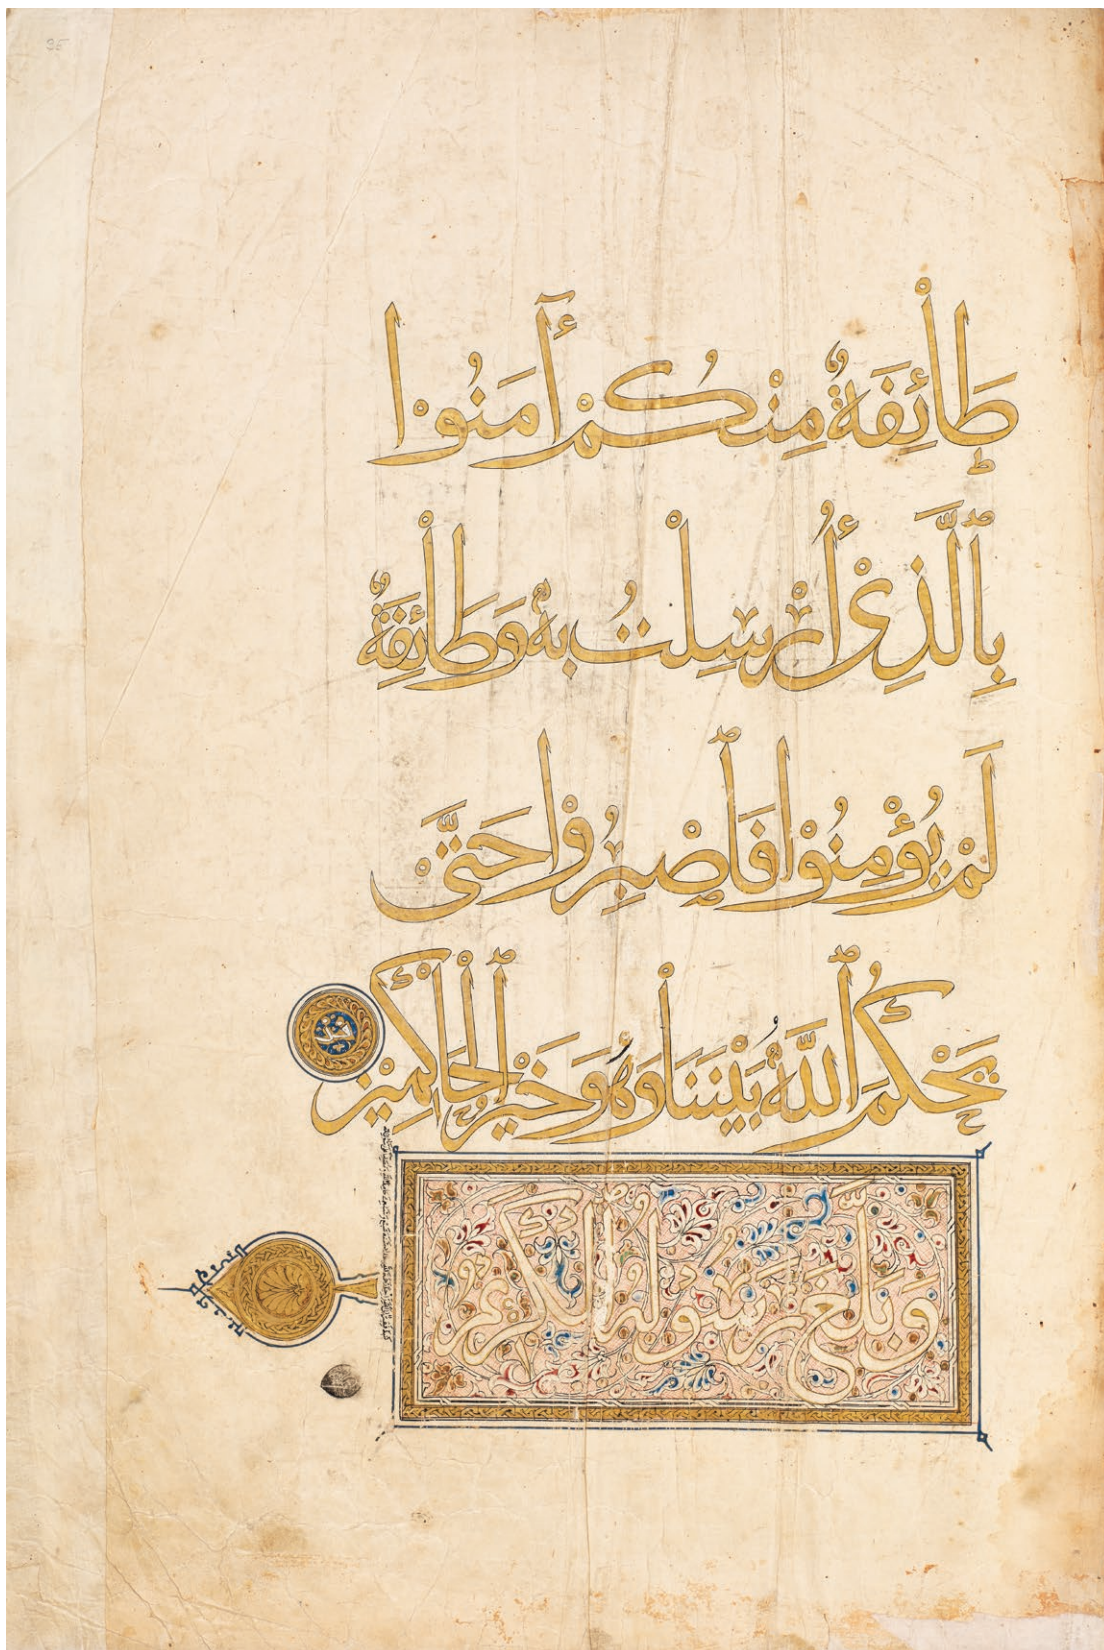 طَائِفَةٌ مِنْكُمْ أٰمَنُوْا
بِٱلَّذِىْ أُرْسِلْتُ بِهٖ وَطَائِفَةٌ
لَمْ يُؤْمِنُوْا فَٱصْبِرُوْا حَتَّىْ
يَحْكُمَ ٱللّٰهُ بَيْنَنَا وَهُوَ خَيْرُ ٱلْحَاكِمِيْنَ
وَبَلَّغَ رَسُولُهُ ٱلْكَرِيمُ